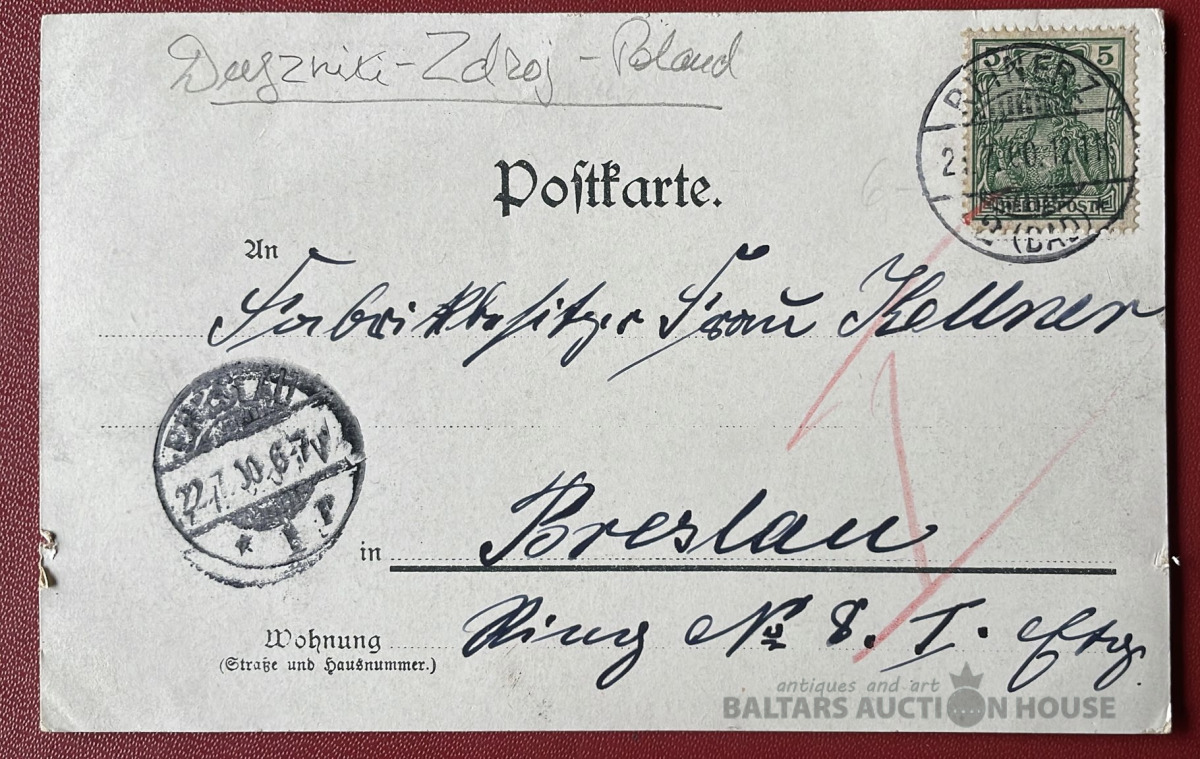 Duszniki-Zdroj - Poland
5 5
REINERZ
2 (BAD)
REICHSPOST
Postkarte.
An
Fabrikbesitzer Frau Kellner
BRESLAU
22.7.00.6-7V
* 1 P
in Breslau
Wohnung Ring No 8. I. Etg.
(Straße und Hausnummer.)
antiques and art
BALTARS AUCTION HOUSE